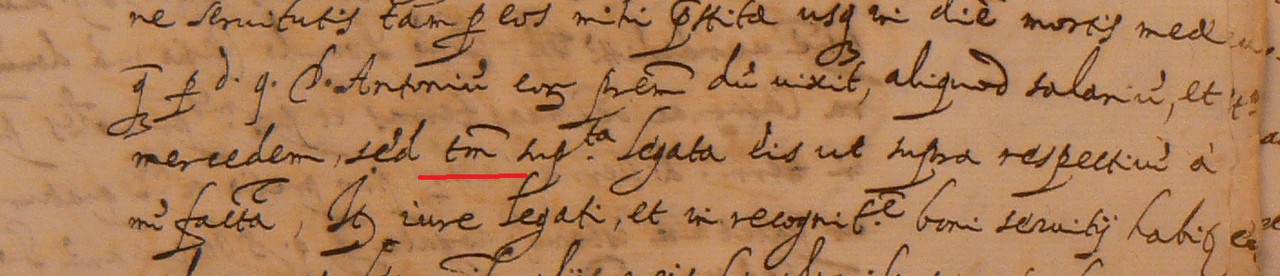 ne servitutis tam p eos mihi p̄stitæ usq in diē mortis meæ
q̄ p d. q. D. Antoniū eorꝝ pr̄em dū vixit, aliquod salariū, et
mercedem, sed tm̄ sup.ta legata eis ut supra respectivè à
mī factā, Itē iure legati, et in recognit.e boni servitij habit